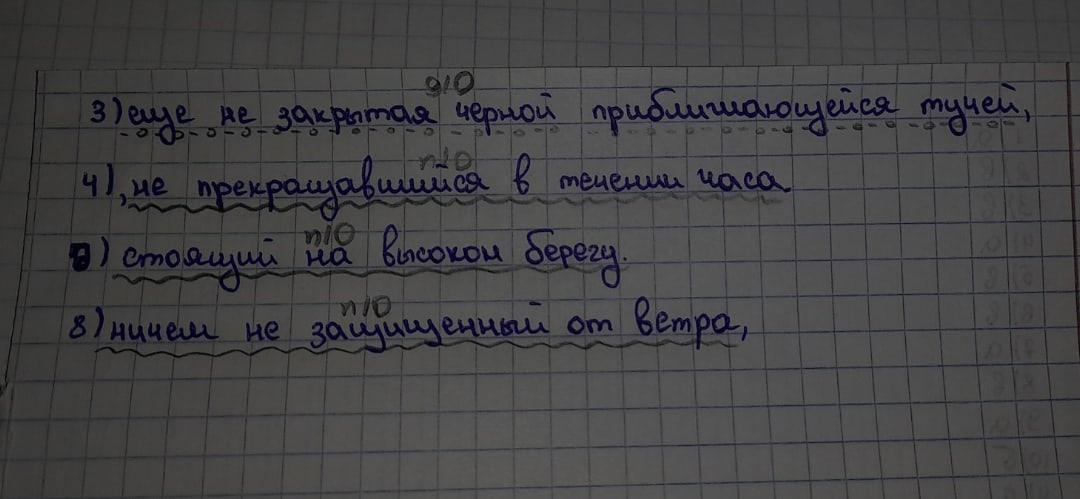 д/о
3) еще не закрытая черной приближающейся тучей,
п/о
4), не прекращавшийся в течении часа
п/о
) стоящий на высоком берегу.
п/о
8) ничем не защищенный от ветра,